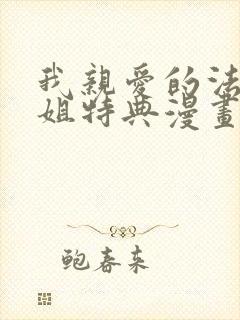 我親愛的法
姐特典漫畫
鲍春来